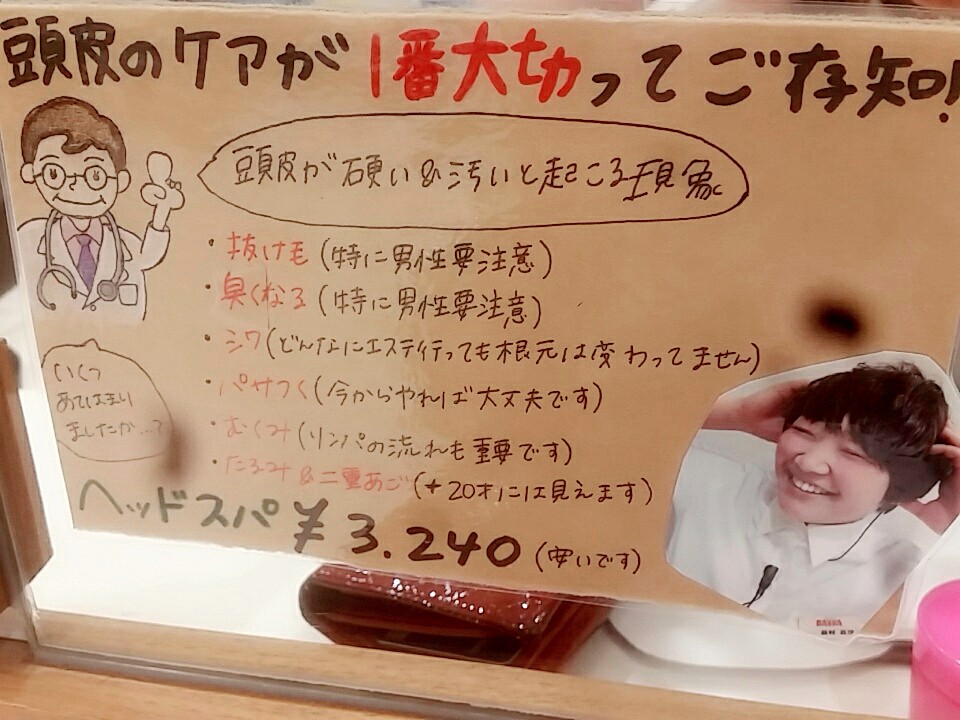 頭皮のケアが1番大切ってご存知!
頭皮が硬い&汚いと起こる現象
・抜け毛(特に男性要注意)
・臭くなる(特に男性要注意)
・シワ(どんなにエステ行っても根元は変わってません)
・パサつく(今からやれば大丈夫です)
・むくみ(リンパの流れも重要です)
・たるみ&二重あご(+20才には見えます)
いくつ
あてはまり
ましたか…?
ヘッドスパ ¥3.240(安いです)